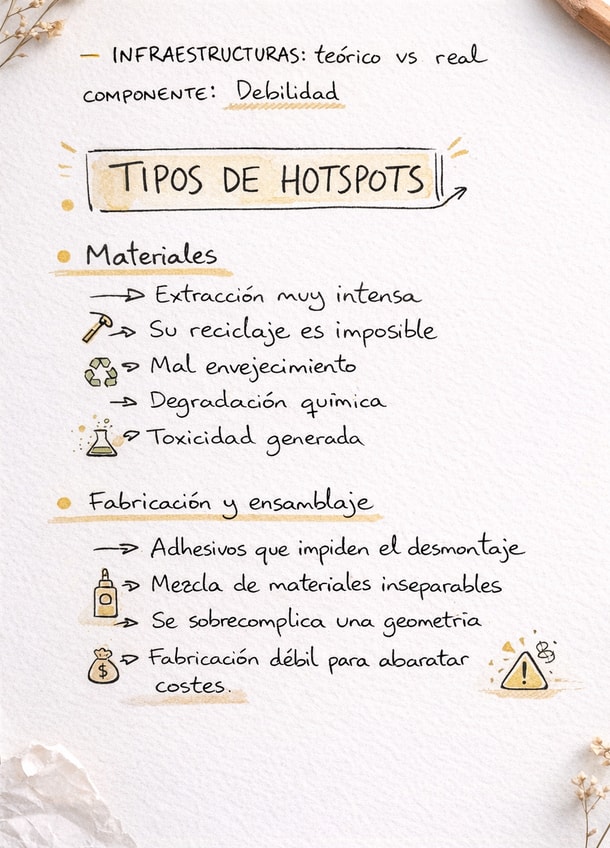 — INFRAESTRUCTURAS: teórico vs real
COMPONENTE: Debilidad
TIPOS DE HOTSPOTS
• Materiales
→ Extracción muy intensa
→ Su reciclaje es imposible
→ Mal envejecimiento
→ Degradación química
→ Toxicidad generada
• Fabricación y ensamblaje
→ Adhesivos que impiden el desmontaje
→ Mezcla de materiales inseparables
→ Se sobrecomplica una geometría
$ → Fabricación débil para abaratar
costes.
!